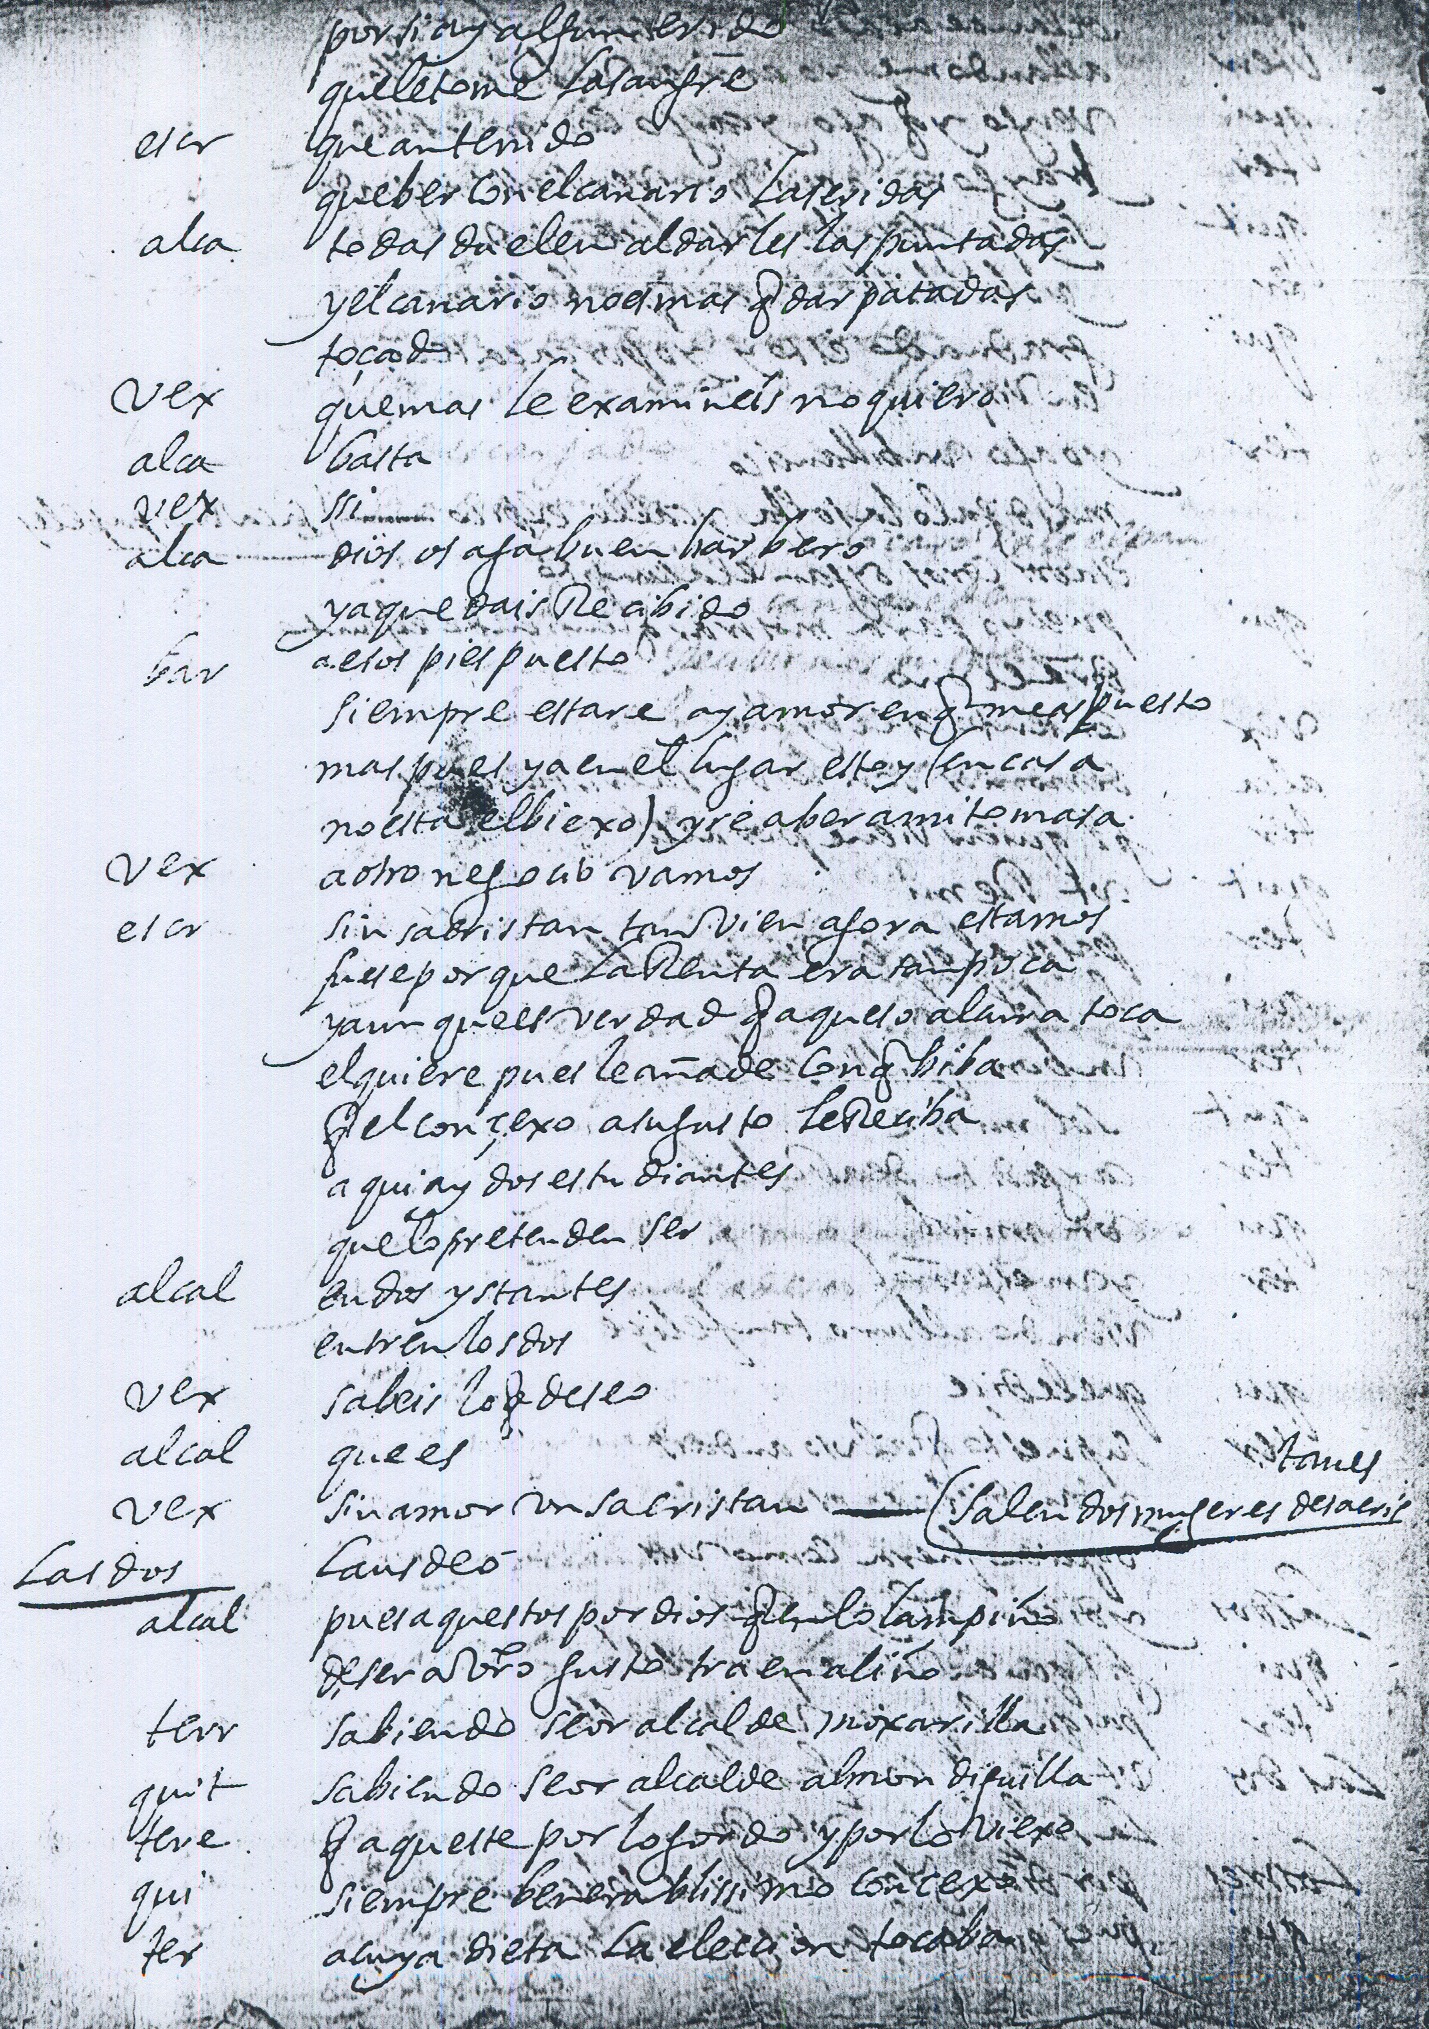 por si ay algun erido
que le tome la sangre
escr que an tenido
que ber con el canario las eridas
alca todas duelen al darles las puntadas
y el canario no es mas q dar patadas
tocad
vex que mas le examineis no quiero
alca basta
vex ssi
alca dios os aga buen barbero
ya quedais Recibido
bar a esos pies puesto
siempre estare ay amor en q me as puesto
mas pues ya en el lugar estoy (en casa
no esta el biexo) yre a ber a mi tomasa
vex a otro negocio vamos
escr sin sacristan tanvien agora estamos
fuese porque la Renta era tan poca
y aunque es verdad q aqueso al cura toca
el quiere pues le añade con q biba
q el conçexo a su gusto le Reciba
aqui ay dos estudiantes
que lo pretenden ser
alcal en dos ystantes
entren los dos
vex sabeis lo q deseo
alcal que es
vex sin amor un sacristan (salen dos mugeres de sacris
tanes
Las dos Laus deo
alcal pues aquestos por dios q en lo lampiño
de ser a vro gusto traen aliño
terr sabiendo seor alcalde moxarilla
quit sabiendo seor alcalde almondiguilla
tere q aqueste por lo gordo y por lo viexo
qui siempre benerabilissimo conçexo
ter a cuya dieta la eleccion tocaba